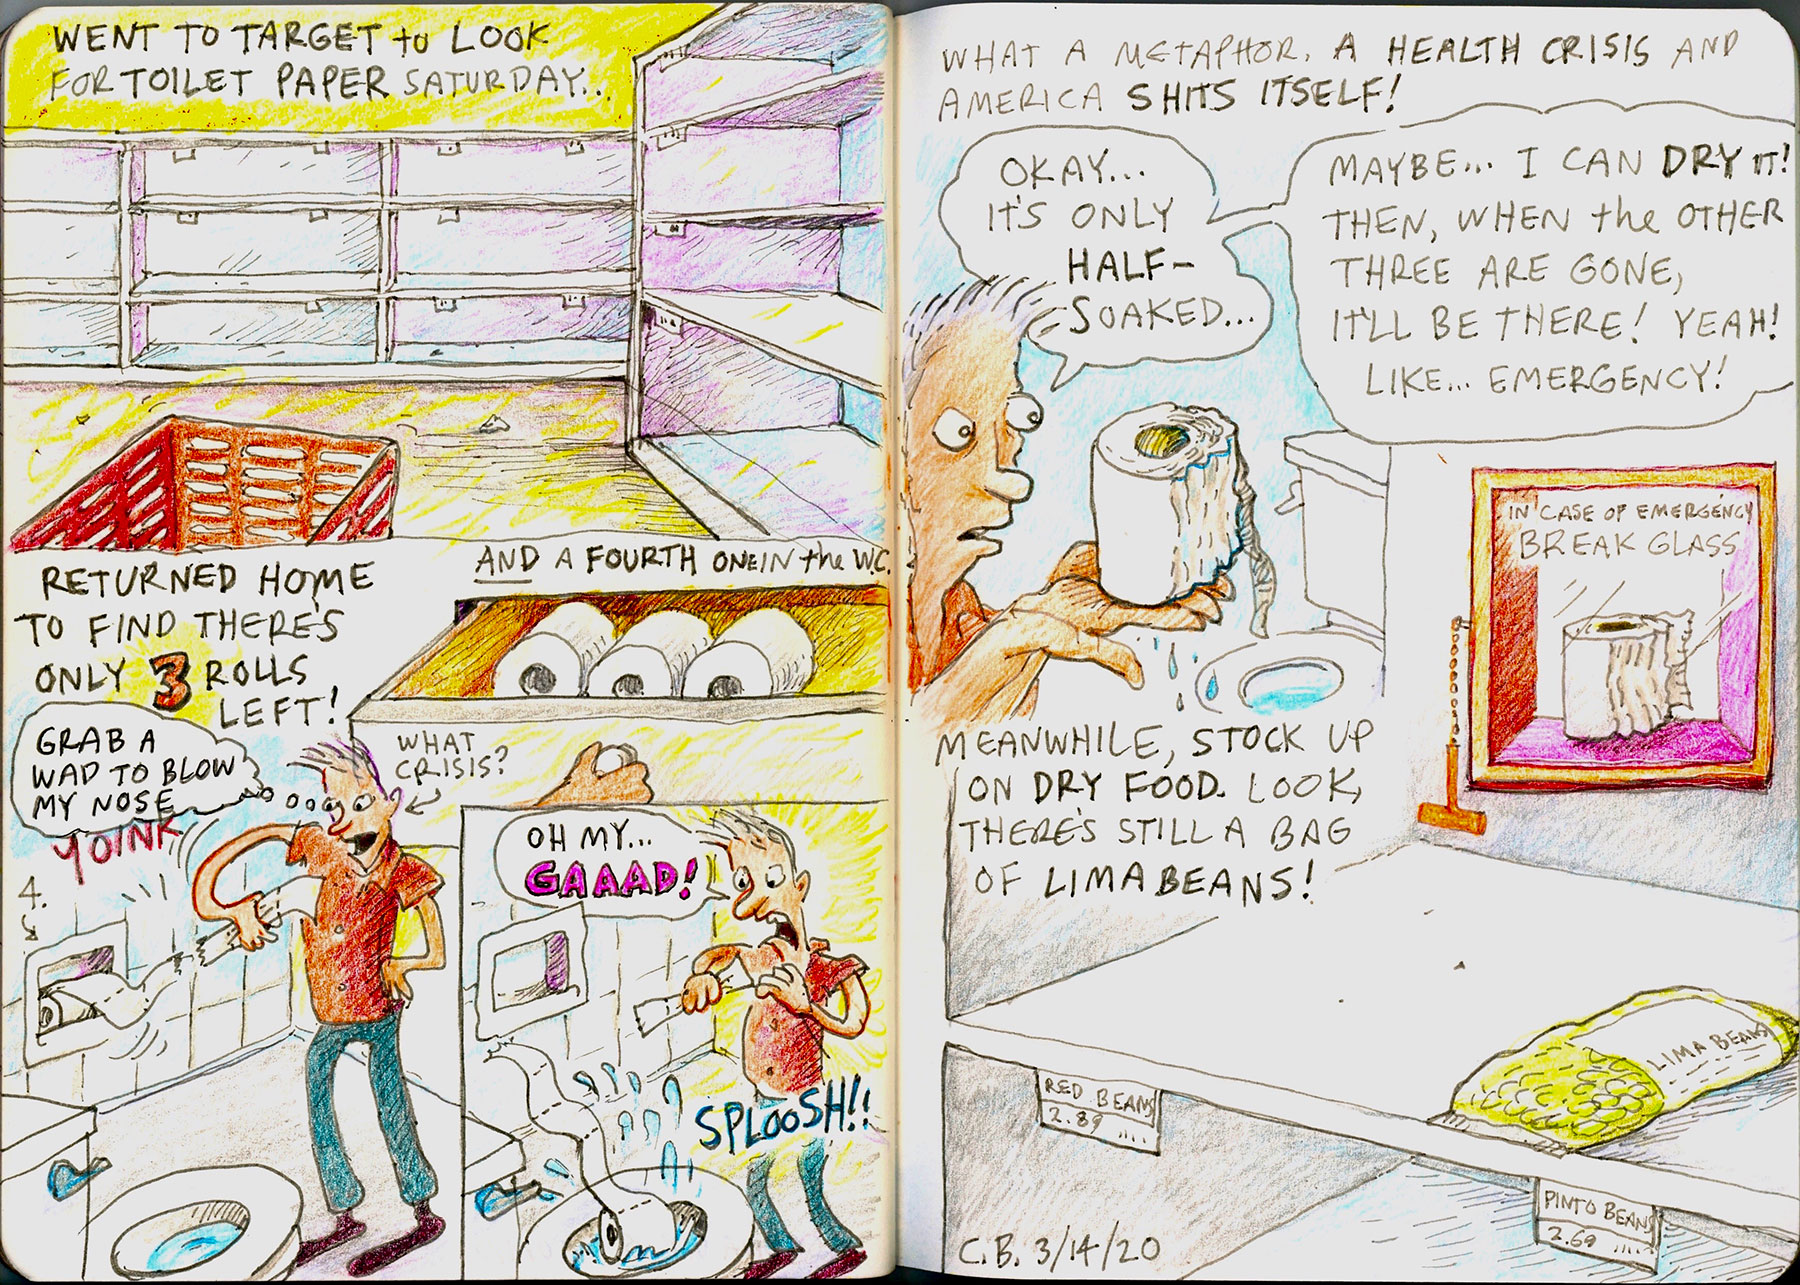 WENT TO TARGET to LOOK
FOR TOILET PAPER SATURDAY...
RETURNED HOME
TO FIND THERE'S
ONLY 3 ROLLS
LEFT!
AND A FOURTH ONE IN the W.C.
GRAB A
WAD TO BLOW
MY NOSE
YOINK
WHAT
CRISIS?
4.
OH MY...
GAAAD!
SPLOOSH!!
WHAT A METAPHOR. A HEALTH CRISIS AND
AMERICA SHITS ITSELF!
OKAY...
IT'S ONLY
HALF-
SOAKED...
MAYBE... I CAN DRY IT!
THEN, WHEN the OTHER
THREE ARE GONE,
IT'LL BE THERE! YEAH!
LIKE... EMERGENCY!
IN CASE OF EMERGENCY
BREAK GLASS
MEANWHILE, STOCK UP
ON DRY FOOD. LOOK,
THERE'S STILL A BAG
OF LIMA BEANS!
LIMA BEANS
RED BEANS
2.89
PINTO BEANS
2.69
C.B. 3/14/20